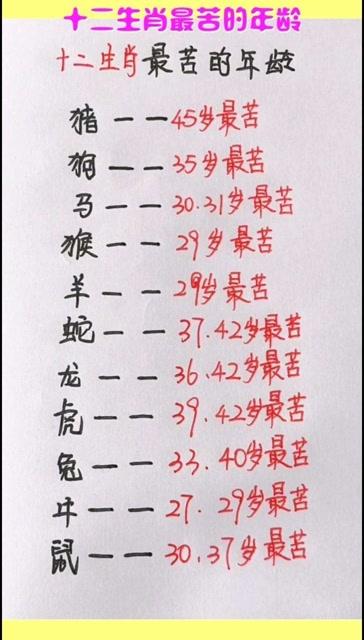 十二生肖最苦的年龄
十二生肖最苦的年龄
猪——45岁最苦
狗——35岁最苦
马——30.31岁最苦
猴——29岁最苦
羊——29岁最苦
蛇——37.42岁最苦
龙——36.42岁最苦
虎——39.42岁最苦
兔——33.40岁最苦
牛——27.29岁最苦
鼠——30.37岁最苦